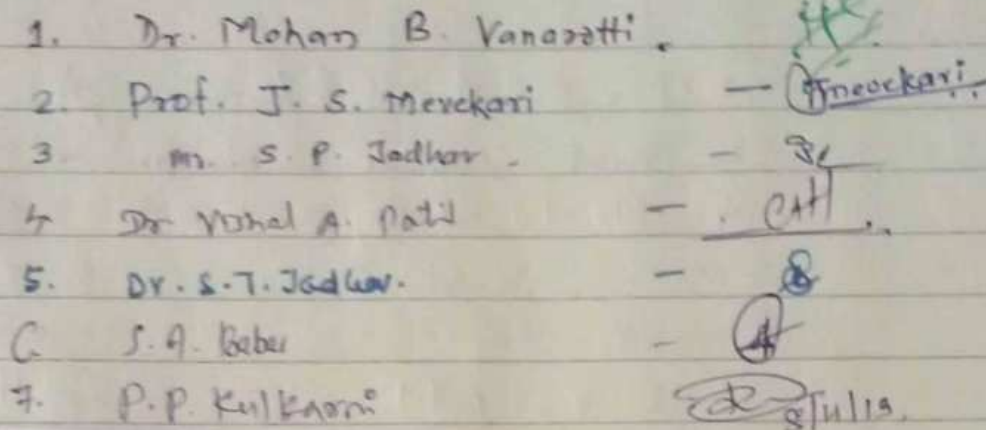 1. Dr. Mohan B. Vanarotti.
2. Prof. J. S. Mevekari - Jmevekari
3 Mr. S. P. Jadhav. -
4 Dr Vishal A. Patil -
5. Dr. S. T. Jadhav. -
6 S. A. Babar -
7. P. P. Kulkarni 8/11/19.